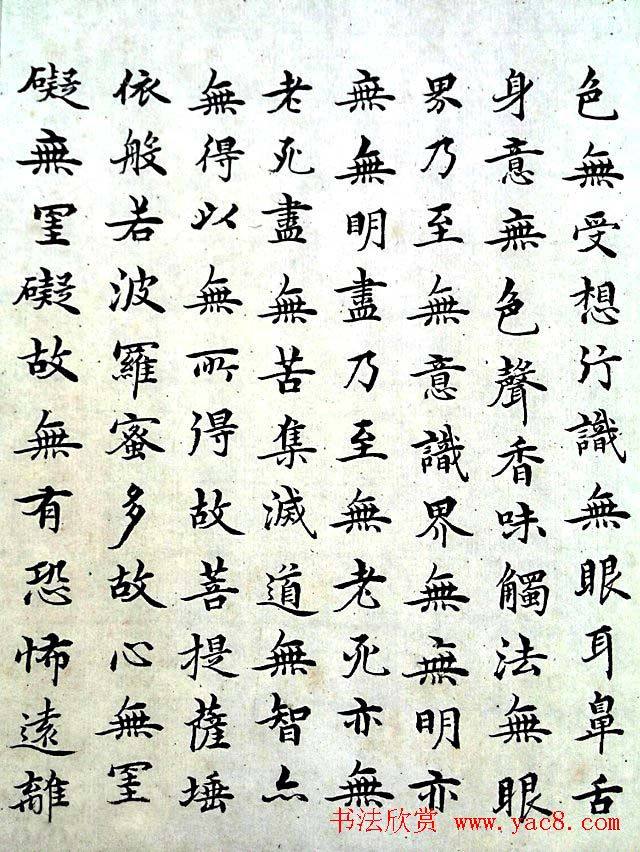 色無受想行識無眼耳鼻舌
身意無色聲香味觸法無眼
界乃至無意識界無無明亦
無無明盡乃至無老死亦無
老死盡無苦集滅道無智亦
無得以無所得故菩提薩埵
依般若波羅蜜多故心無罣
礙無罣礙故無有恐怖遠離
书法欣赏 www.yac8.com